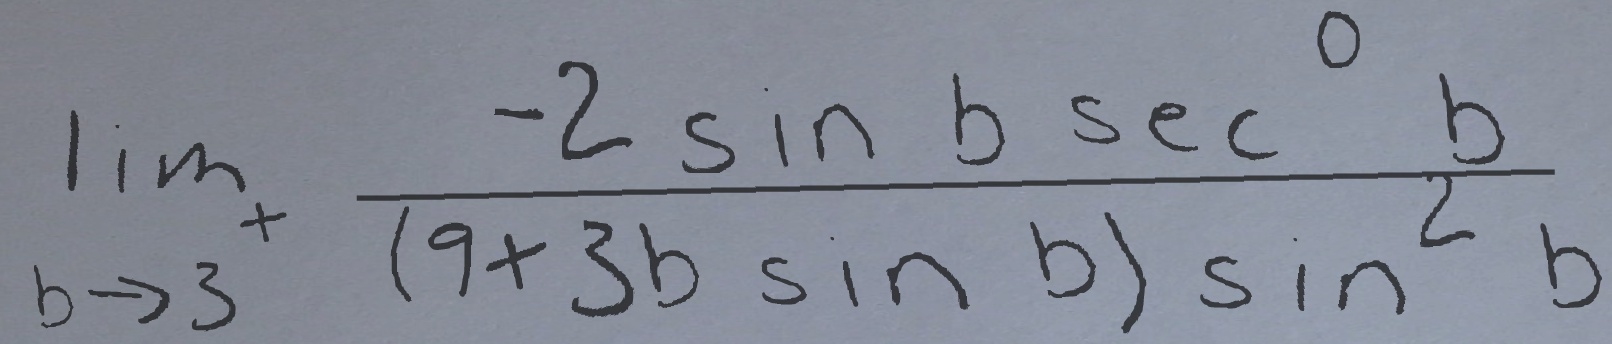 \lim_{b \to 3^+} \frac{-2 \sin b \sec^0 b}{(9+3b \sin b) \sin^2 b}